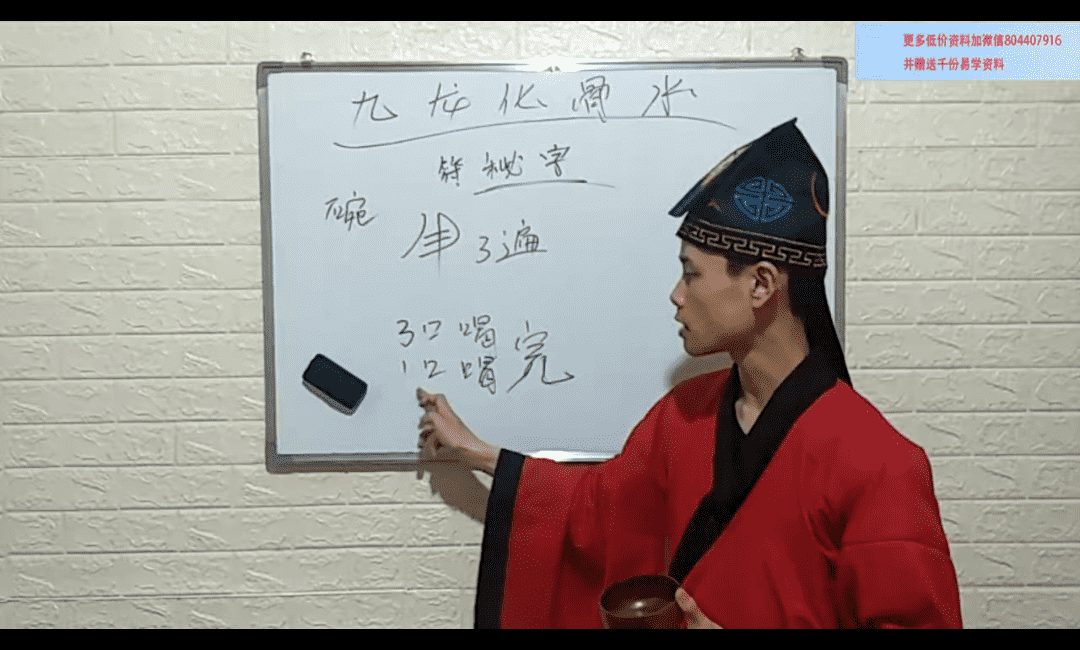 更多低价资料加微信804407916
并赠送千份易学资料
九龙化骨水
符秘字
碗
3遍
3口喝完
1口喝